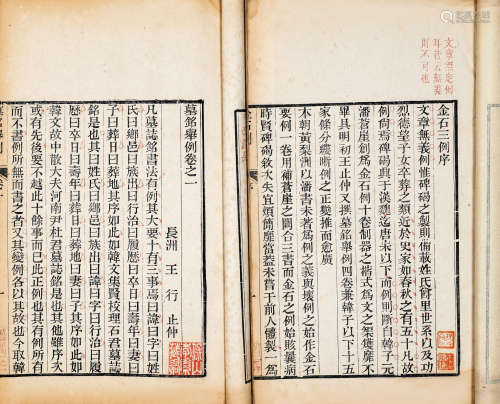 耳若云無義
則不可也
金石三例序
文章無義例惟碑碣之製則備載姓氏爵里世系以及功
烈德望子女卒葬之類近於史家如春秋之有五十凡故
例尚焉碑碣興于漢魏迄唐以下而例則斷自韓子元
潘蒼崖創爲金石例十卷制器之楷式爲文之榘矱靡不
畢具明初王止仲又撰墓銘舉例四卷兼韓子以下十五
家條分縷晰例之正變推而愈廣
本朝黃梨洲以潘書未著爲例之義與壞例之始作金石
要例一卷用補蒼崖之闕合三書而金石之例始賅曩病
時賢碑碣敘次失宜煩簡靡當蓋未嘗于前人體製一爲
墓銘舉例卷之一
長洲 王行 止仲
凡墓誌銘書法有例其大要十有三事焉曰諱曰字曰姓
氏曰鄉邑曰族出曰行治曰履歷曰卒日曰壽年曰妻曰
子曰葬日曰葬地其序如此如韓文集賢校理石君墓誌
銘是也其曰姓氏曰鄉邑曰族出曰諱曰字曰行治曰履
歷曰卒日曰壽年曰葬日曰葬地曰妻曰子其序如此如
韓文故中散大夫河南尹杜君墓誌銘是也其他雖序次
或有先後要不越此十餘事而已此正例也其有例所有
而不書例所無而書之者又其變例各以其故也今取韓